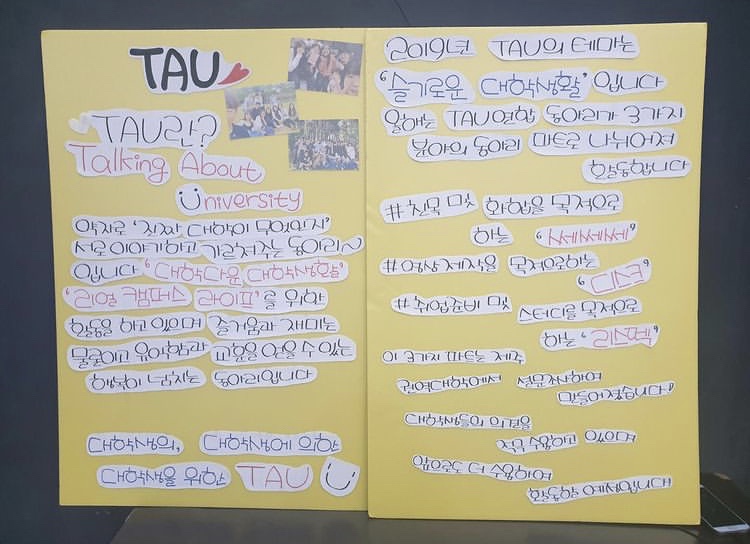 TAU
TAU란?
Talking About
University
약자로 '진짜 대학이 무엇인지'
서로 이야기하고 가르쳐주는 동아리~
입니다 '대학다운 대학생활'
'리얼 캠퍼스 라이프'를 위한
활동을 하고 있으며 즐거움과 재미는
물론이고 유익함과 교훈을 얻을 수 있는
행복이 넘치는 동아리입니다
대학생의, 대학생에 의한
대학생을 위한 TAU
2019년 TAU의 테마는
'슬기로운 대학생활' 입니다
올해는 TAU연합 동아리가 3가지
분야의 동아리 파트로 나뉘어져
활동합니다
#친목 및 화합을 목적으로
하는 "세세세세"
#영상제작을 목적으로하는
"디스크"
#취업준비 및 스터디를 목적으로
하는 "리스펙"
이 3가지 파트는 제주
권역대학에서 설문조사하여
만들어졌습니다!
대학생들의 의견을
적극 수용하고 있으며
앞으로도 더 수용하여
활동할 예정입니다